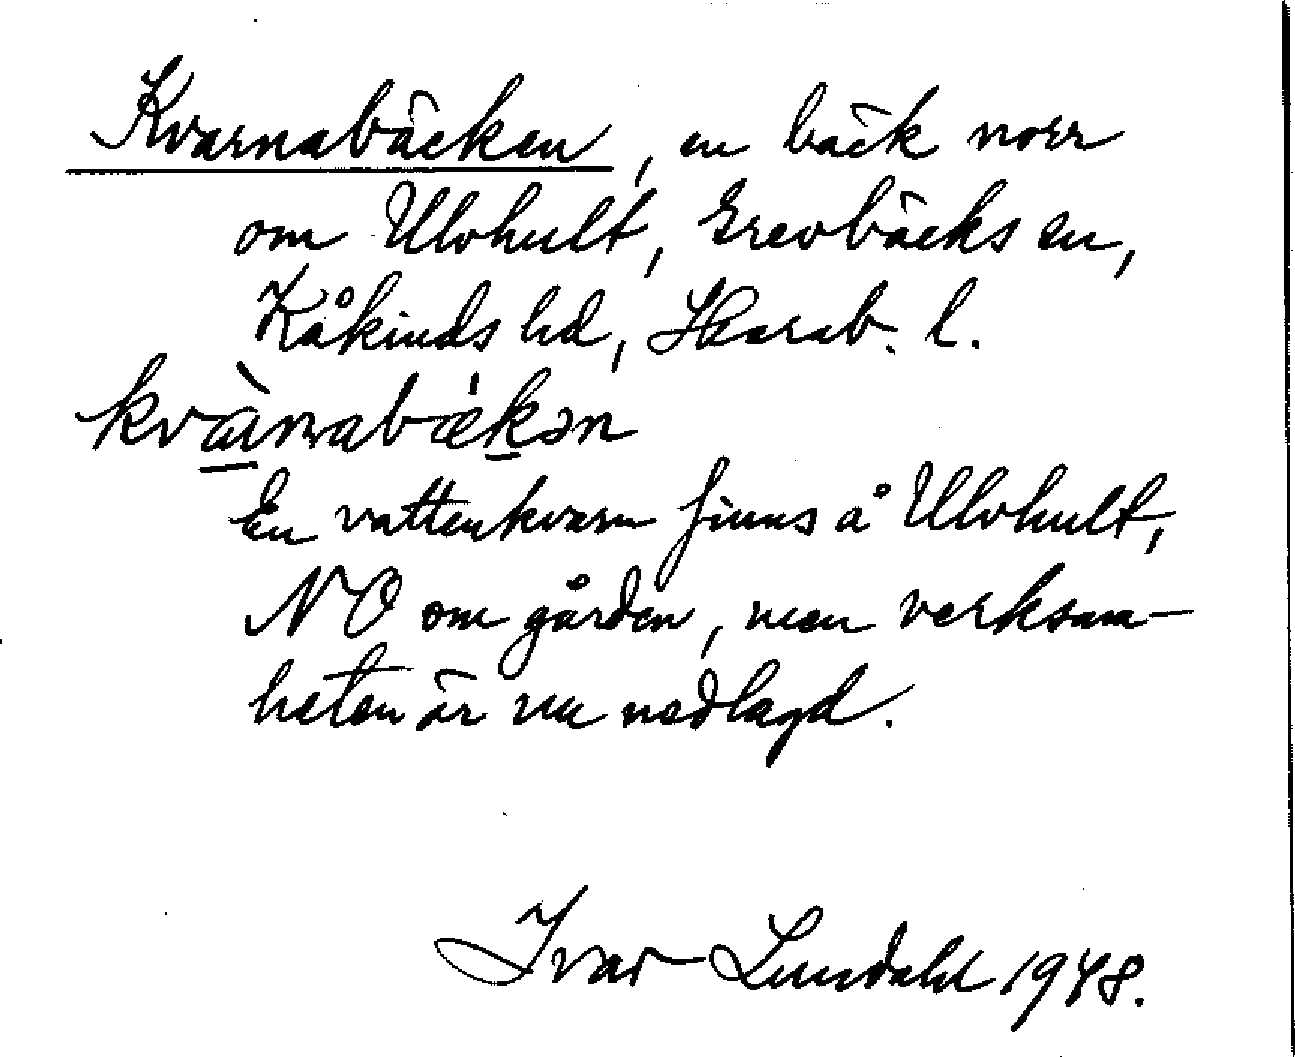 Kvarnabäcken, en bäck norr
om Ulvhult, Grevbäcks sn,
Kåkinds hd, Skarab. l.
kvànabǽkən
En vattenkvarn finns å Ulvhult,
NO om gården, men verksam-
heten är nu nedlagd.
Ivar Lundahl 1948.